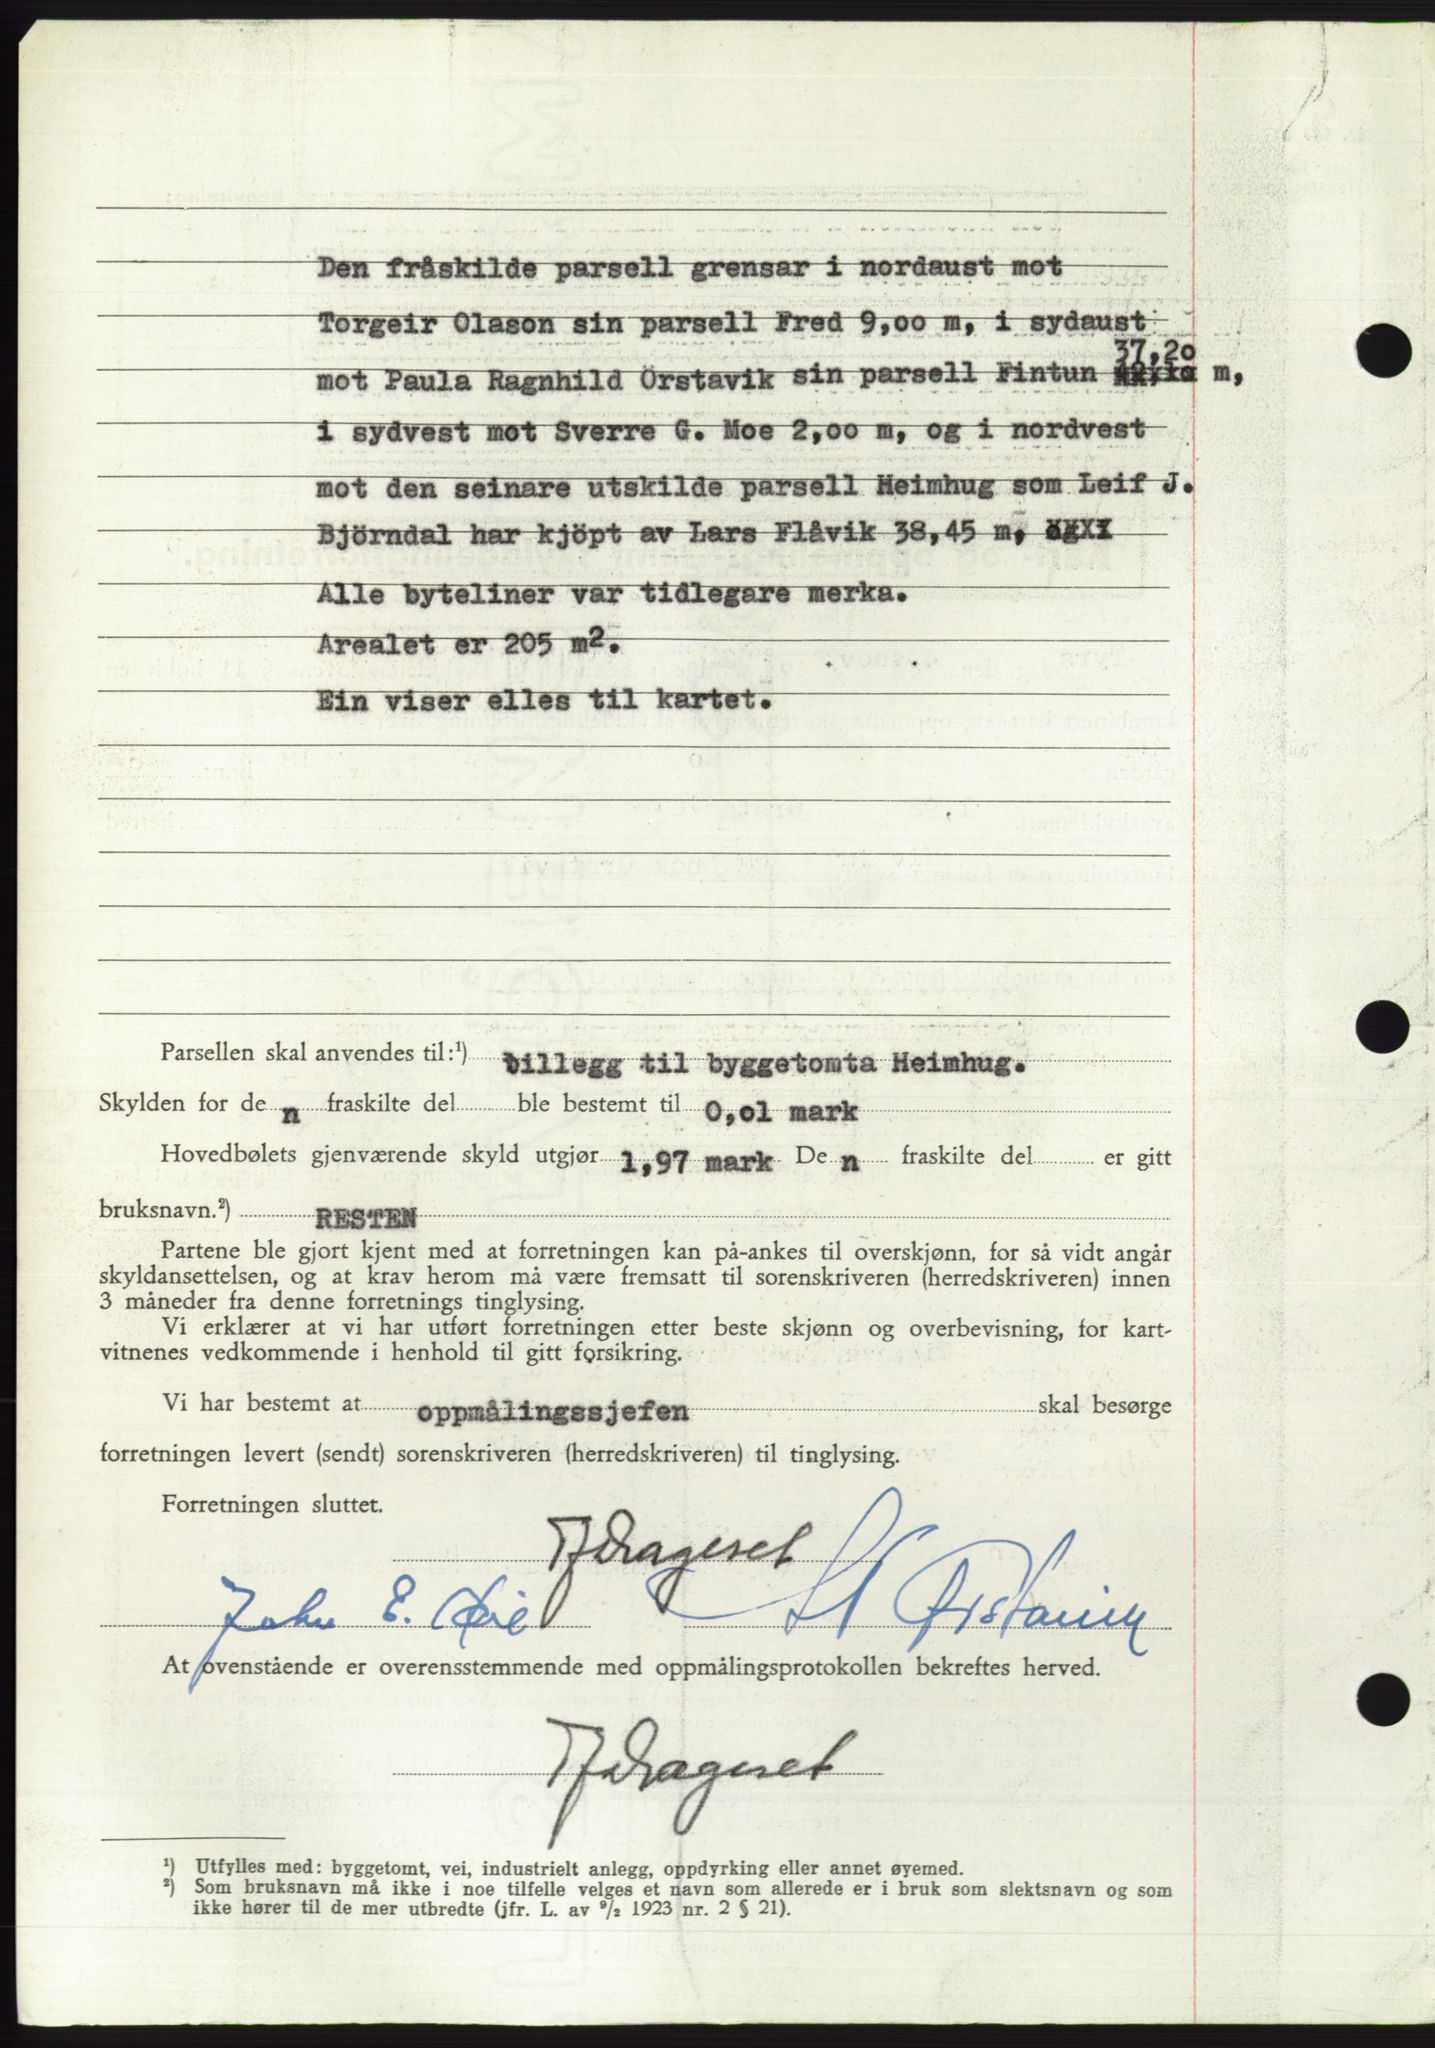 Den fråskilde parsell grensar i nordaust mot
Torgeir Olason sin parsell Fred 9,00 m, i sydaust
37,20
mot Paula Ragnhild Örstavik sin parsell Fintun m,
i sydvest mot Sverre G. Moe 2,00 m, og i nordvest
mot den seinare utskilde parsell Heimhug som Leif J.
Björndal har kjöpt av Lars Flåvik 38,45 m, og
Alle byteliner var tidlegare merka.
Arealet er 205 m2.
Ein viser elles til kartet.
Parsellen skal anvendes til:¹) tillegg til byggetomta Heimhug.
Skylden for de n fraskilte del ble bestemt til 0,01 mark
Hovedbølets gjenværende skyld utgjør 1,97 mark De n fraskilte del er gitt
bruksnavn.²) RESTEN
Partene ble gjort kjent med at forretningen kan på-ankes til overskjønn, for så vidt angår
skyldansettelsen, og at krav herom må være fremsatt til sorenskriveren (herredskriveren) innen
3 måneder fra denne forretnings tinglysing.
Vi erklærer at vi har utført forretningen etter beste skjønn og overbevisning, for kart-
vitnenes vedkommende i henhold til gitt forsikring.
Vi har bestemt at oppmålingssjefen skal besørge
forretningen levert (sendt) sorenskriveren (herredskriveren) til tinglysing.
Forretningen sluttet.
Drageset
John E.
At ovenstående er overensstemmende med oppmålingsprotokollen bekreftes herved.
Drageset
¹) Utfylles med: byggetomt, vei, industrielt anlegg, oppdyrking eller annet øyemed.
²) Som bruksnavn må ikke i noe tilfelle velges et navn som allerede er i bruk som slektsnavn og som
ikke hører til de mer utbredte (jfr. L. av ⁹/₂ 1923 nr. 2 § 21).